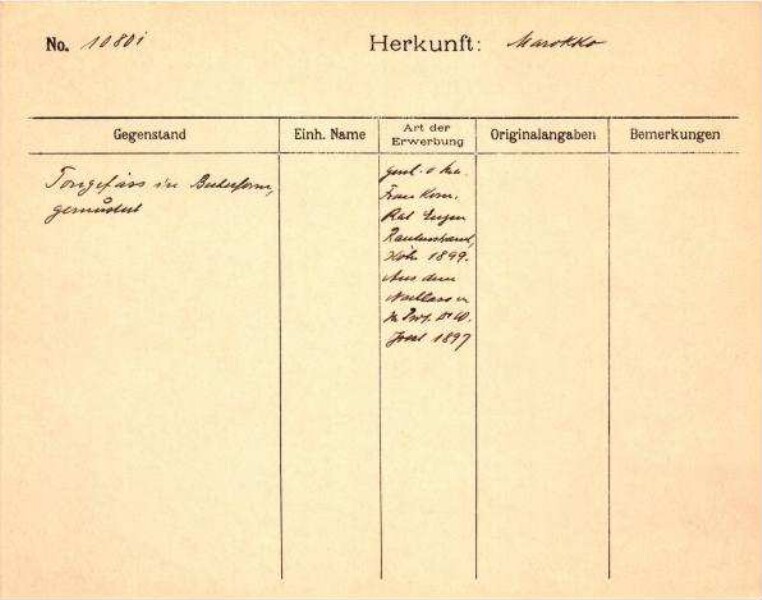 No. 1080i
Herkunft: Marokko
Gegenstand
Einh. Name
Art der
Erwerbung
Originalangaben
Bemerkungen
Tongefäss in Becherform,
gemustert
Frau Kom.
Rat Eugen
Rautenstrauch,
Köln 1899.
Aus dem
Nachlass
Prof. Dr W.
Joest 1897